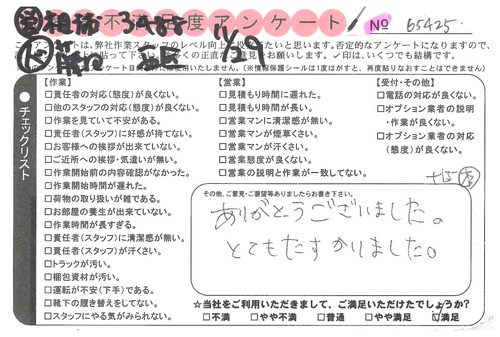 不満度アンケート No 65425
このアンケートは、弊社作業スタッフのレベル向上に役立てたいと思います。否定的なアンケートになりますので、
くの正直なご意見をお願いします。✓印は、いくつでも結構です。
チェックリスト
【作業】
□責任者の対応(態度)が良くない。
□他のスタッフの対応(態度)が良くない。
□作業を見ていて不安がある。
□責任者(スタッフ)に好感が持てない。
□お客様への挨拶が出来ていない。
□ご近所への挨拶・気遣いが無い。
□作業開始前の内容確認がなかった。
□作業開始時間が遅れた。
□荷物の取り扱いが雑である。
□お部屋の養生が出来ていない。
□作業時間が長すぎる。
□責任者(スタッフ)に清潔感が無い。
□責任者(スタッフ)が汗くさい。
□トラックが汚い。
□梱包資材が汚い。
□運転が不安(下手)である。
□靴下の履き替えをしてない。
□スタッフにやる気がみられない。
【営業】
□見積もり時間に遅れた。
□見積もり時間が長い。
□営業マンに清潔感が無い。
□営業マンが煙草くさい。
□営業マンが汗くさい。
□営業態度が良くない。
□営業の説明と作業が一致してない。
【受付・その他】
□電話の対応が良くない。
□オプション業者の説明
・作業が良くない。
□オプション業者の対応
(態度)が良くない。
その他、ご意見・ご要望等ありましたらお書き下さい。
ありがとうございました。
とてもたすかりました。
☆当社をご利用いただきまして、ご満足いただけたでしょうか?
□不満 □やや不満 □普通 □やや満足 ☑満足